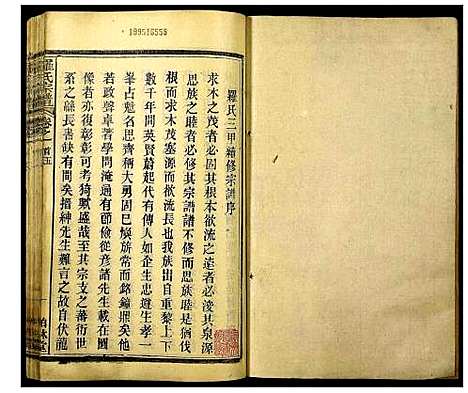 199516555
羅氏三甲續修宗譜序
求木之茂者必固其根本欲流之遠者必浚其泉源
思族之睦者必修其宗譜譜不修而思族睦是猶伐
根而求木茂塞源而欲流長也我族出自重黎上下
數千年間英賢蔚起代有傳人如企生忠邁生孝一
峯占魁名思齊稱大勇固已煥族常而銘鐘鼎矣他
若政聲卓著學問淹通有節儉從彥諸先生載在國
像者亦復彰彰可考猗歟盛哉至其宗支之蕃衍世
系之緜長書缺有間矣搢紳先生難言之故自伏龍
羅氏宗譜
卷之一
首五
柏林堂